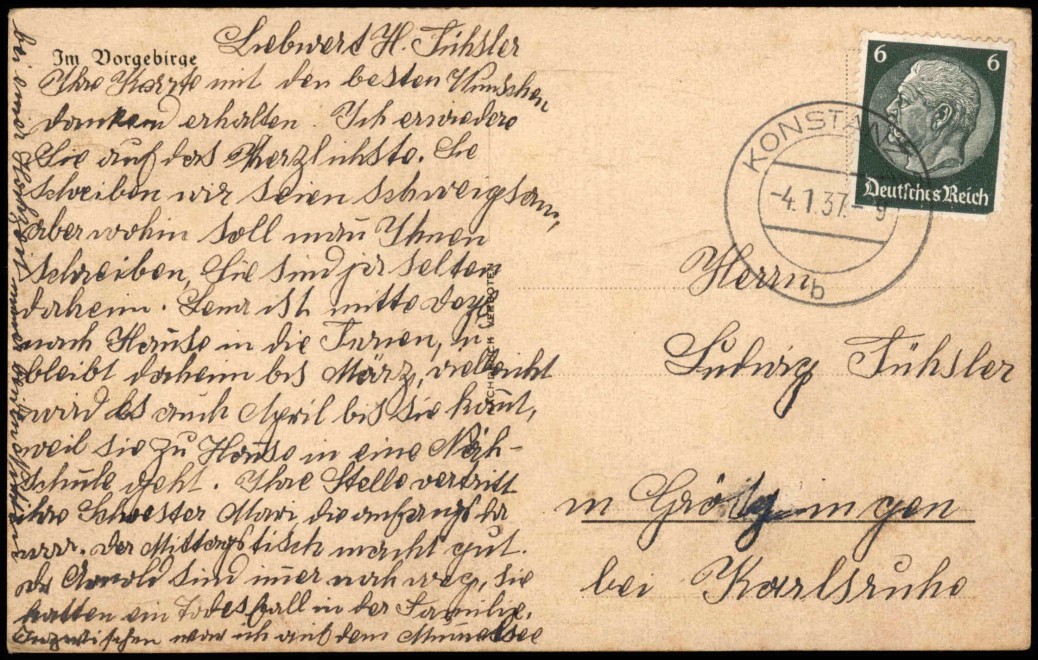 Im Vorgebirge
Liebwert H. Fühsler
Ihre Karte mit den besten Wünschen
dankend erhalten. Ich erwiedere
Sie auf das Herzlichste. Sie
schreiben wir seien schweigsam,
aber wohin soll man Ihnen
schreiben, Sie sind ja selten
daheim. Lena ist mitte Dez.
nach Hause in die Ferien, u.
bleibt daheim bis März, vielleicht
wird es auch April bis sie komt,
weil sie zu Hause in eine Näh-
schule geht. Ihre Stelle vertritt
ihre Schwester Mari, die anfangs hir
war. Der Mittagstisch macht gut.
Arnold sind imer noch weg, sie
hatten ein Todesfall in der Familie.
Inzwischen war ich auf dem
bei einer Hochzeit
6 6
Deutsches Reich
KONSTANZ
-4.1.37.-9
b
Herrn
Ludwig Fühsler
in Grötzingen
bei Karlsruhe